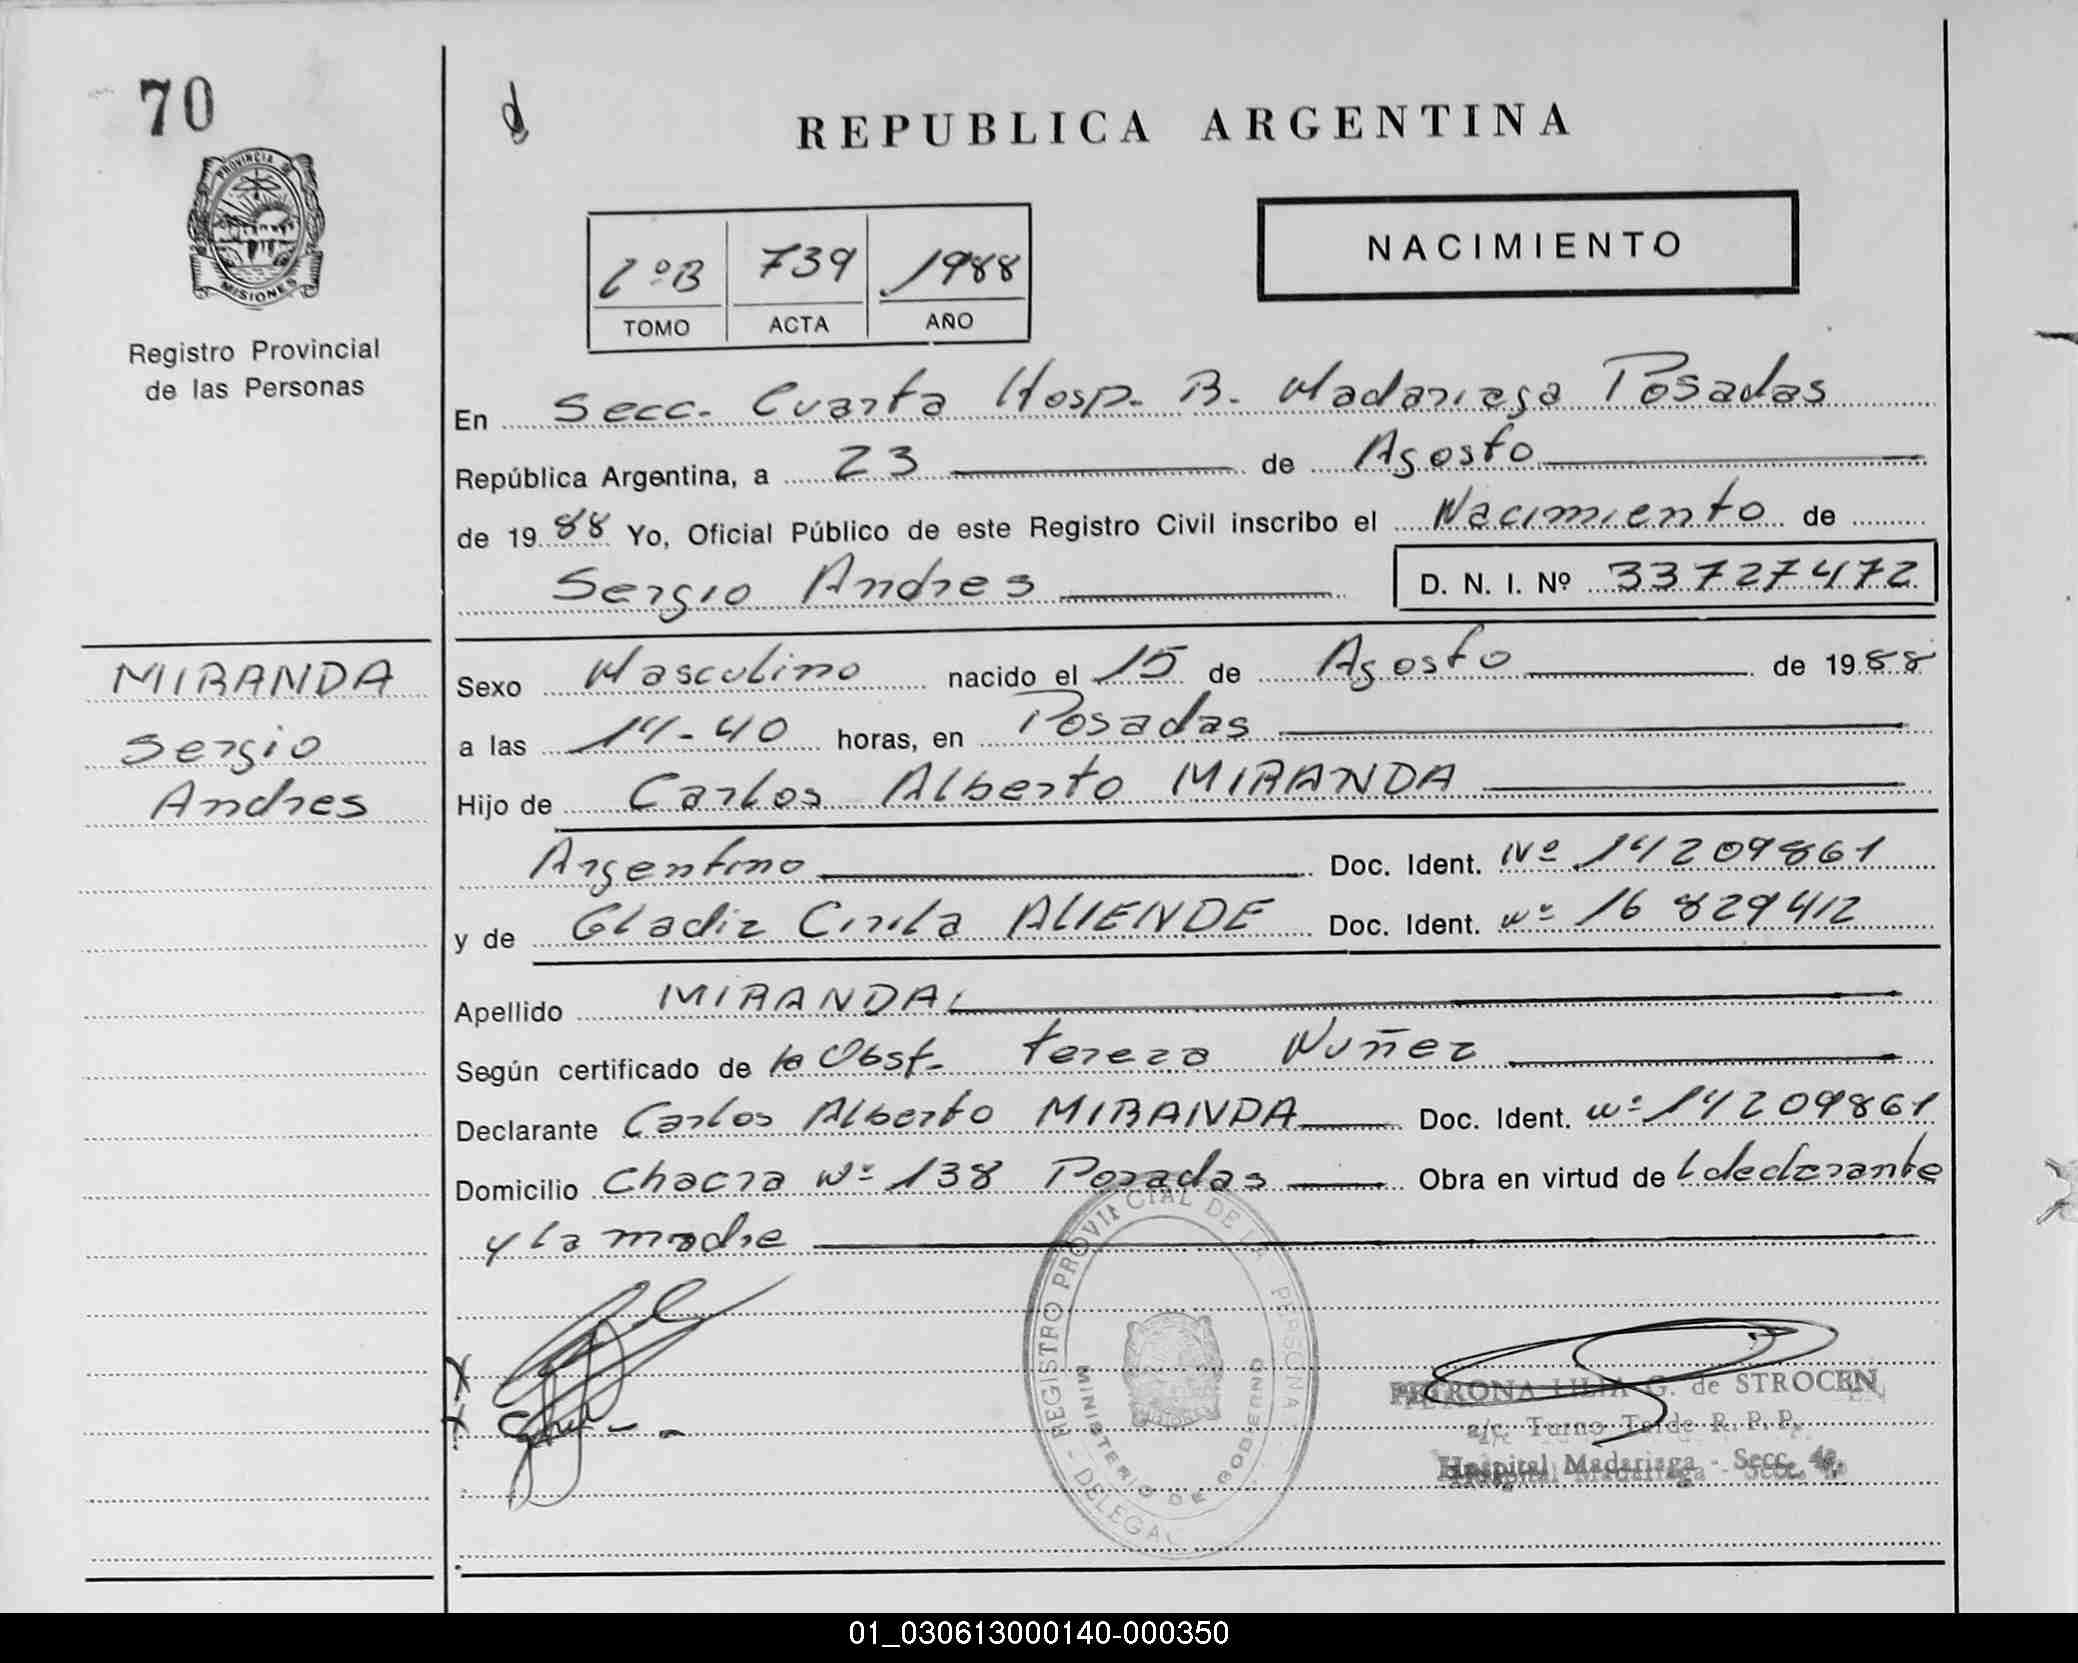 70
PROVINCIA DE
MISIONES
Registro Provincial
de las Personas
MIRANDA
Sergio
Andres
REPUBLICA ARGENTINA
2ºB 739 1988
TOMO ACTA AÑO
NACIMIENTO
En Secc. Cuarta Hosp. B. Madariaga Posadas
República Argentina, a 23 de Agosto
de 1988 Yo, Oficial Público de este Registro Civil inscribo el Nacimiento de
Sergio Andres D. N. I. Nº 33727472
Sexo Masculino nacido el 15 de Agosto de 1988
a las 14-40 horas, en Posadas
Hijo de Carlos Alberto MIRANDA
Argentino Doc. Ident. Nº 14209861
y de Gladiz Cirila ALIENDE Doc. Ident. Nº 16829412
Apellido MIRANDA
Según certificado de la Obst. Tereza Nuñez
Declarante Carlos Alberto MIRANDA Doc. Ident. Nº 14209861
Domicilio Chacra Nº 138 Posadas Obra en virtud de l declarante
y la madre
REGISTRO PROVINCIAL DE LA PERSONA
MINISTERIO DE GOBIERNO
PETRONA LILIA G. de STROCEN
a/c. Turno Tarde R. P. P.
Hospital Madariaga - Secc. 4a.
01_030613000140-000350